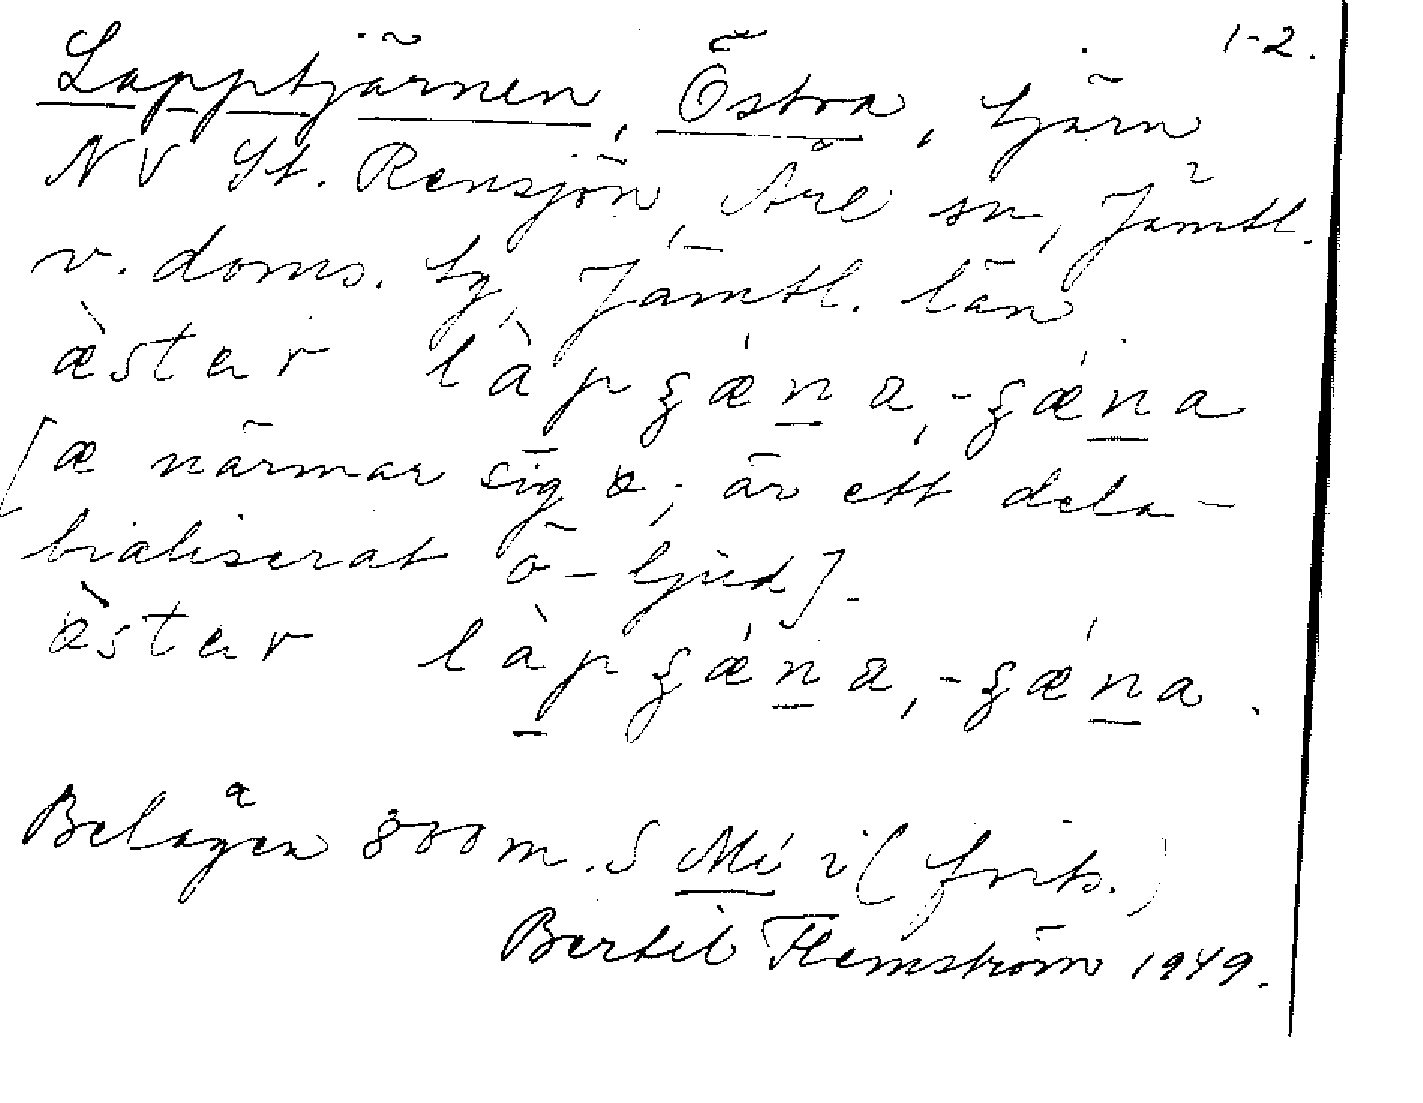 1-2.
Lapptjärnen, Östra, tjärn
NV St. Rensjön, Åre sn, Jämtl.
v. doms. tg, Jämtl. län
æ̀star làpʒǽn̲a, -ʒǽn̲a
[æ närmar sig ; är ett dela-
bialiserat ö-ljud].
æ̀star là̲pʒǽn̲a, -ʒǽn̲a.
Belägen 800 m. S Mi i (forts.)
Bertil Flemström 1949.